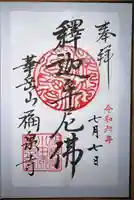 奉拝
令和六年
七月七日
釋迦牟尼佛
福泉寺